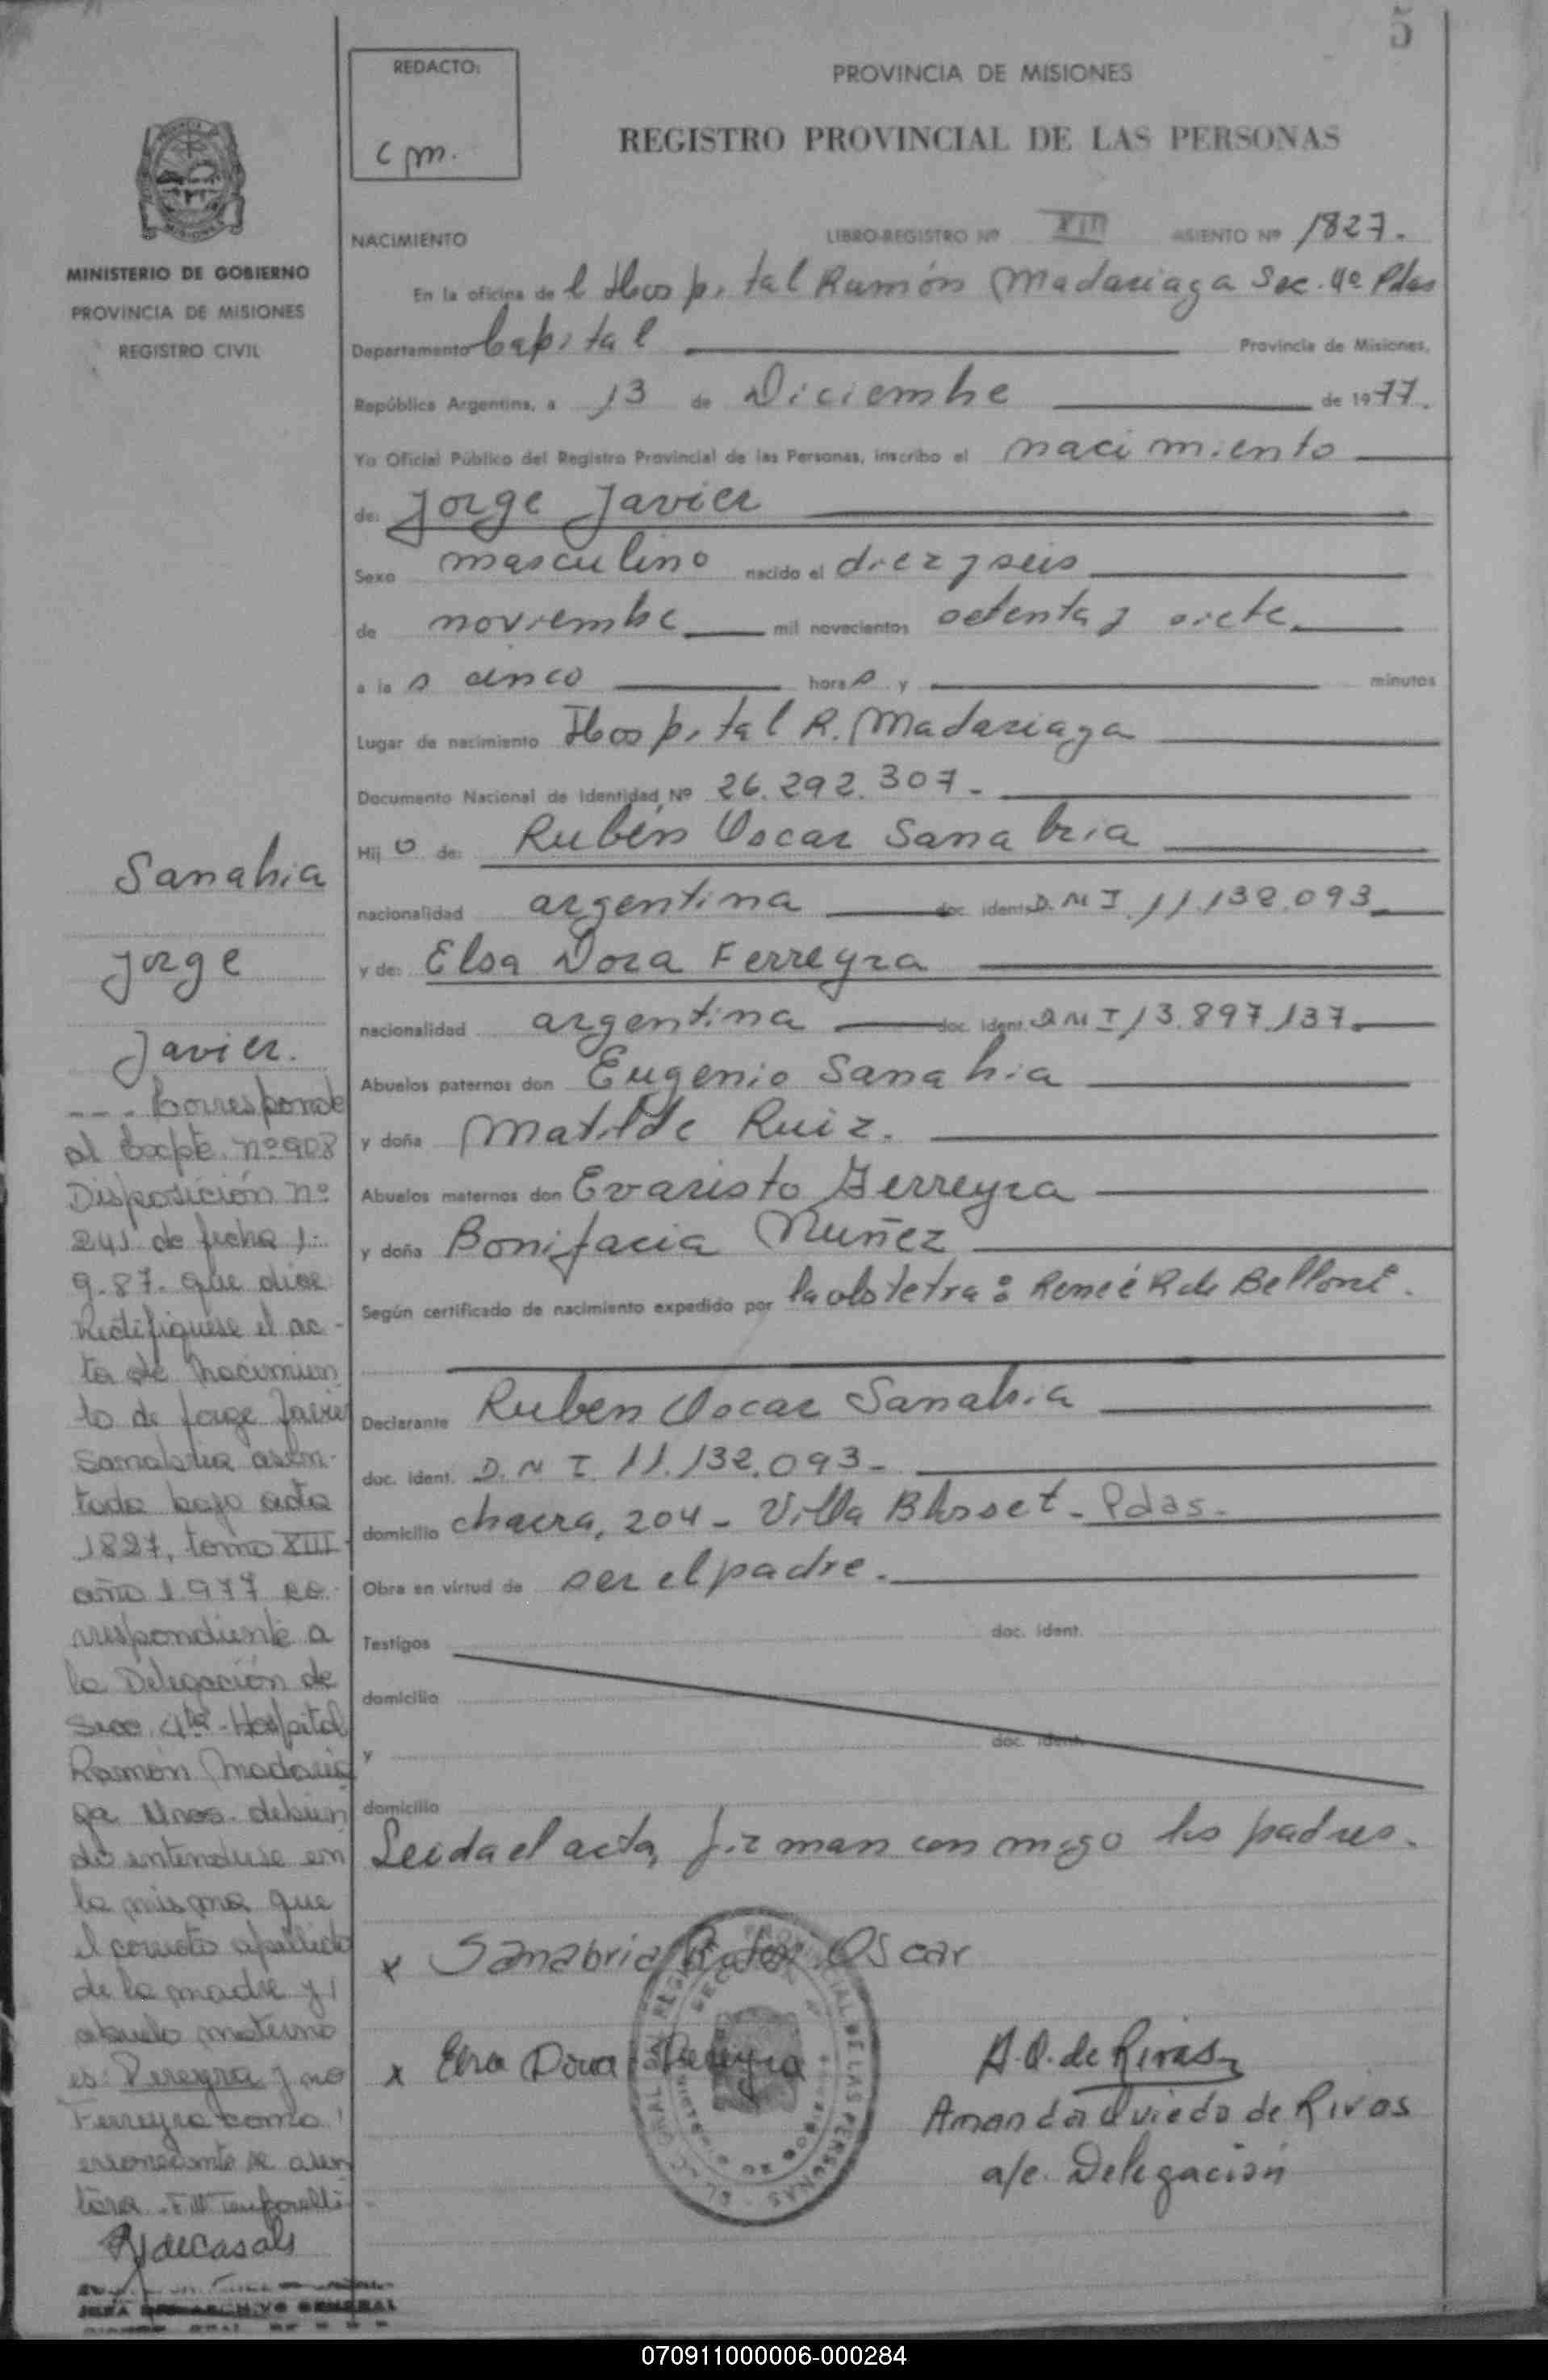 5
REDACTO:
c m.
PROVINCIA DE MISIONES
REGISTRO PROVINCIAL DE LAS PERSONAS
MINISTERIO DE GOBIERNO
PROVINCIA DE MISIONES
REGISTRO CIVIL
NACIMIENTO LIBRO-REGISTRO Nº XIII ASIENTO Nº 1827.
En la oficina del Hospital Ramón Madariaga Sec. 4º Pdas
Departamento Capital Provincia de Misiones,
República Argentina, a 13 de Diciembre de 1977.
Yo Oficial Público del Registro Provincial de las Personas, inscribo el nacimiento
de: Jorge Javier
Sexo masculino nacido el diez y seis
de noviembre mil novecientos setenta y siete
a las cinco horas y minutos
Lugar de nacimiento Hospital R. Madariaga
Documento Nacional de Identidad Nº 26.292.307-
Hijo de: Rubén Oscar Sanabria
nacionalidad argentina doc. ident. D.N.I. 11.132.093
y de: Elsa Dora Ferreyra
nacionalidad argentina doc. ident. D N I 13.897.137.
Abuelos paternos don Eugenio Sanabria
y doña Matilde Ruiz.
Abuelos maternos don Evaristo Ferreyra
y doña Bonifacia Nuñez
Según certificado de nacimiento expedido por la obstetra: Reneé R de Belloni.
Declarante Ruben Oscar Sanabria
doc. ident. D. N I. 11.132.093-
domicilio chacra, 204 - Villa Blosset - Pdas-
Obra en virtud de ser el padre.
Testigos doc. ident.
domicilio
y doc. ident.
domicilio
Leida el acta, firman con migo los padres.
x Sanabria Ruben Oscar
x Elsa Dora Pereyra
A.O. de Rivas
Amanda Oviedo de Rivas
a/c. Delegación
Sanabria
Jorge
Javier.
---. Corresponde
al Expte. nº 908
Disposición nº
241 de fecha 1-
9-87. que dice:
Rectifiquese el ac-
ta de Nacimien
to de Jorge Javier
Sanabria asen-
tada bajo acta
1827, tomo XIII
año 1977 co-
rrespondiente a
la Delegación de
Secc. 4ta - Hospital
Ramón Madaria
ga Mnes. debien
do entenderse en
la misma que
el correcto apellido
de la madre y
abuelo materno
es: Pereyra y no
Ferreyra como
erroneamente se asen
tara.
R de Casals
JEFA ARCHIVO GENERAL
070911000006-000284